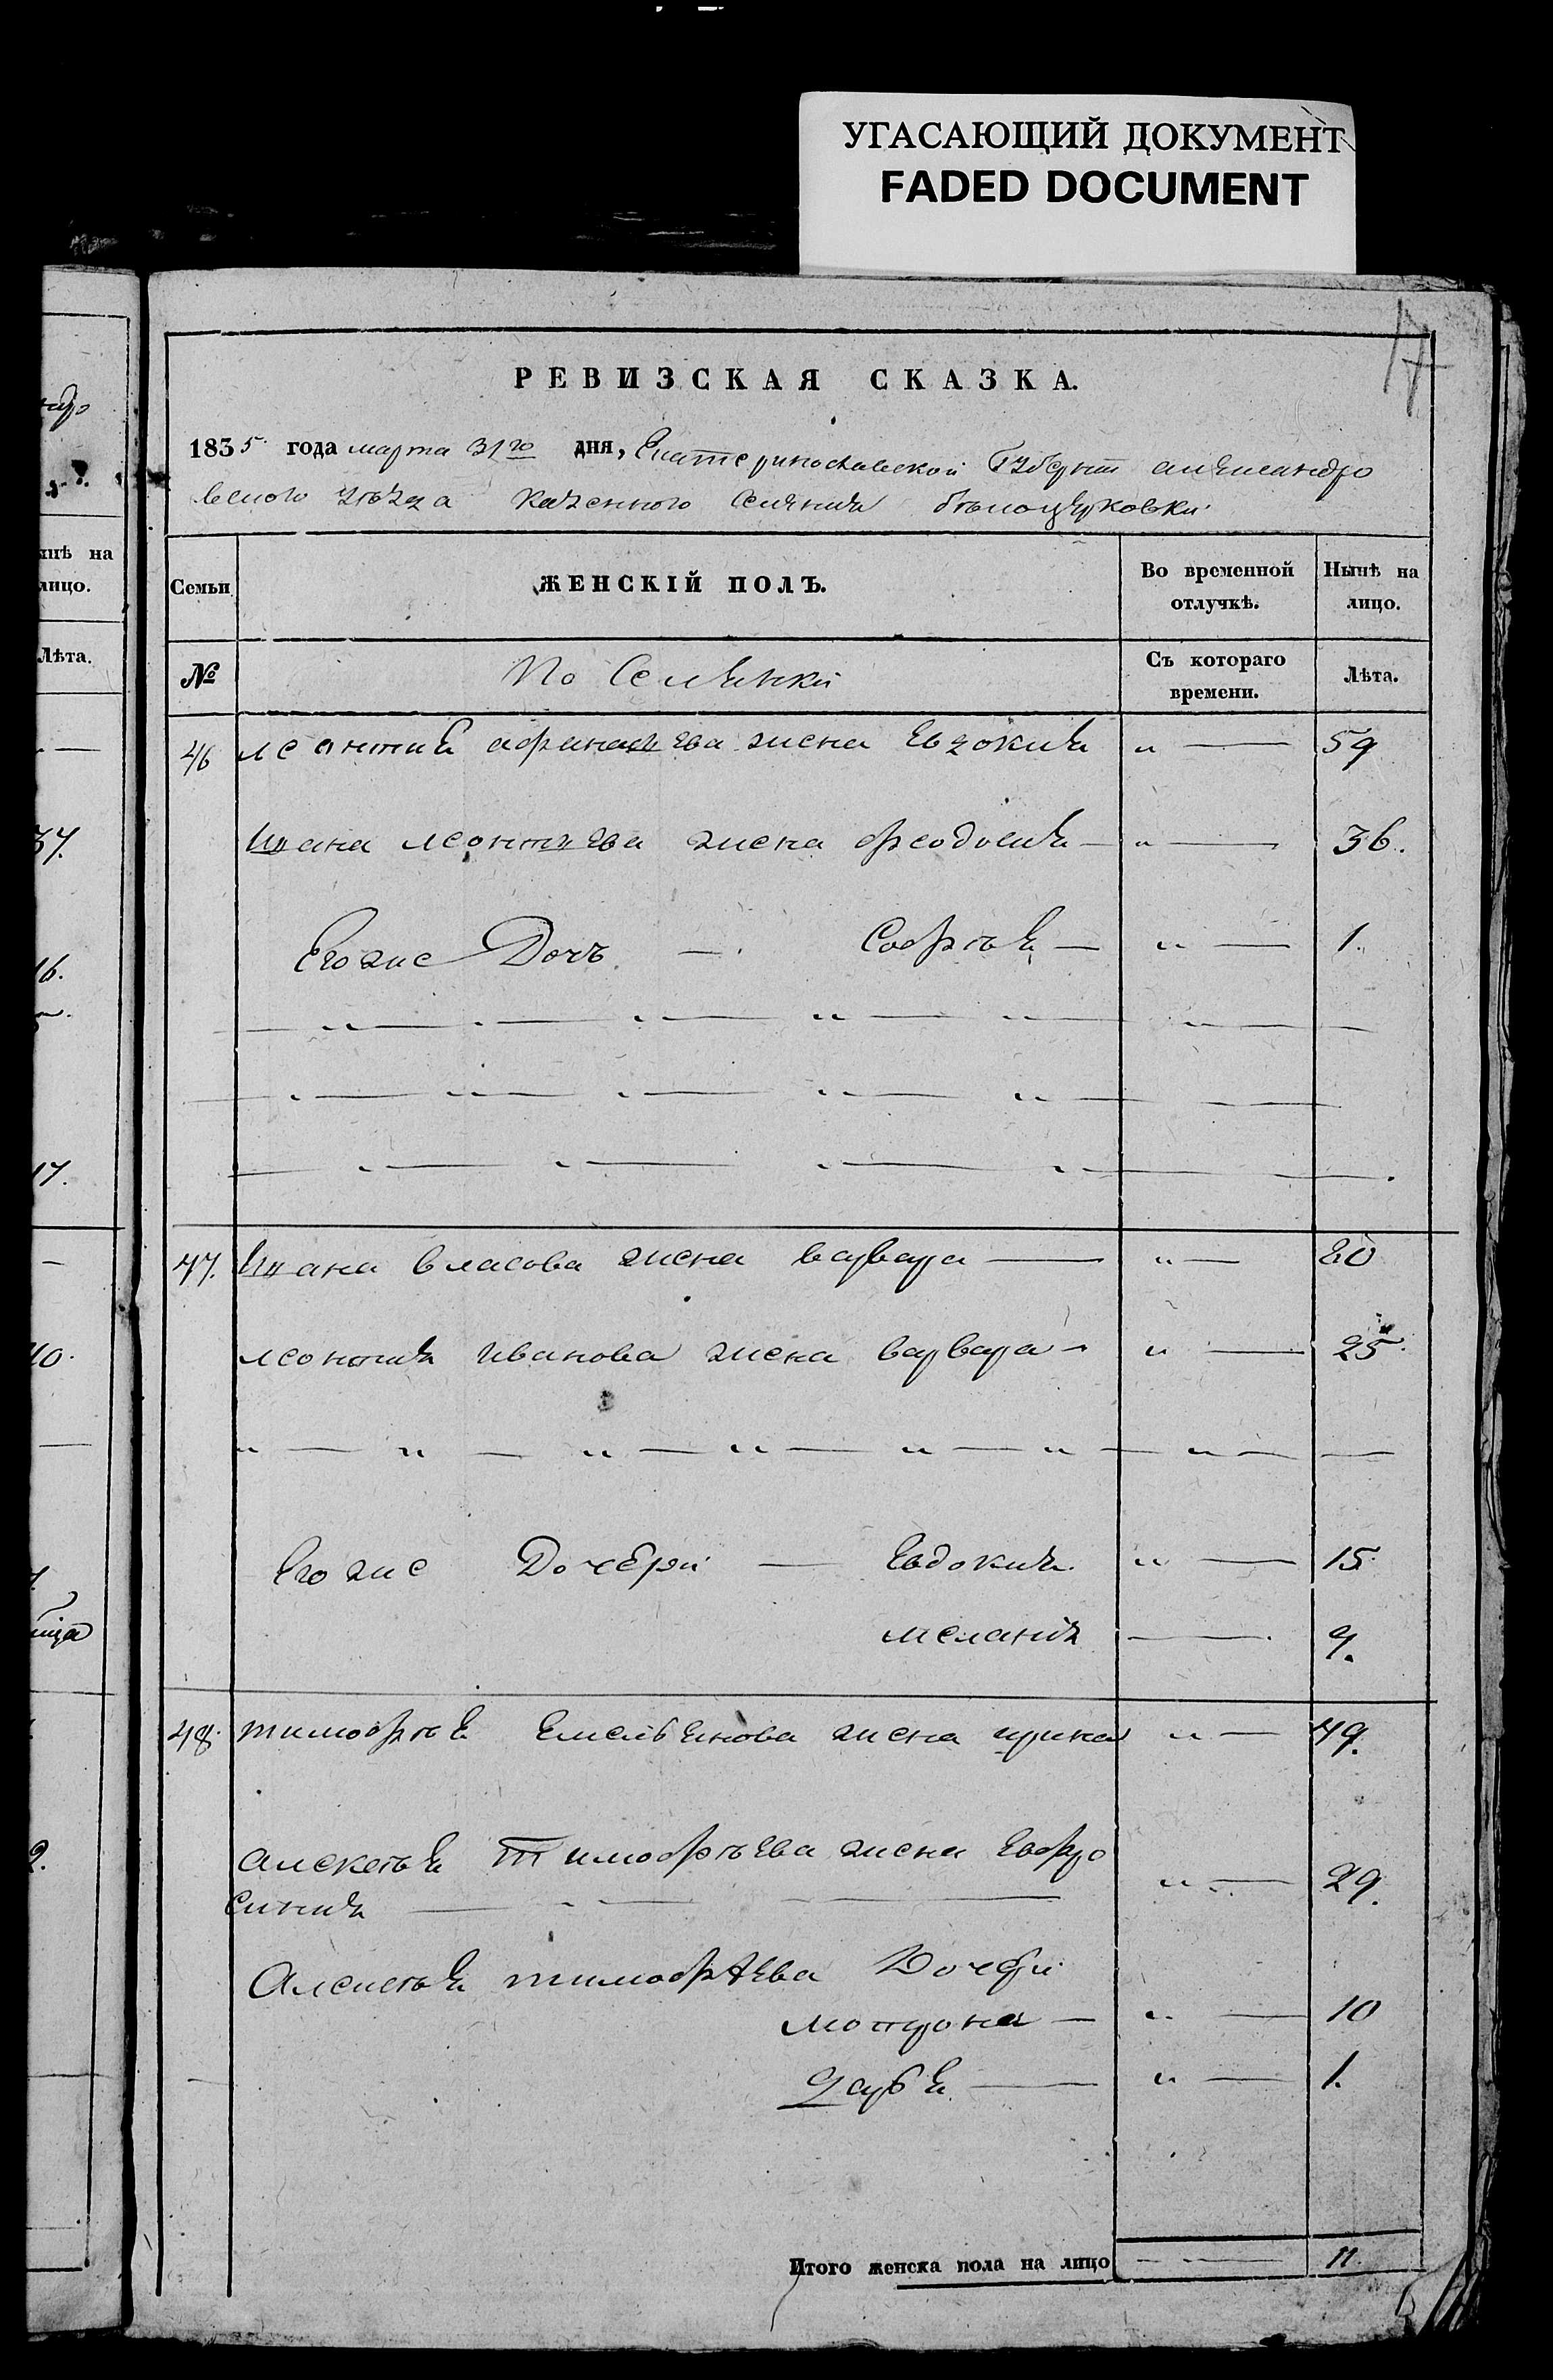 УГАСАЮЩИЙ ДОКУМЕНТ
FADED DOCUMENT
17
РЕВИЗСКАЯ СКАЗКА.
1835 года марта 31го дня, Екатеринославской Губерни александро
вскаго уѣзда казенного Селения бѣлоцерковки
Семьи
ЖЕНСКІЙ ПОЛЪ.
Во временной отлучкѣ.
Нынѣ на лицо.
№
Поселянки
Съ котораго времени.
Лѣта.
46 леонтия афанасиева жена Евдокия „ — 59
Ивана леонтиева жена феодосия — „ — 36.
Его же Дочь — Софѣя — „ — 1.
47. Ивана власова жена варвара — „ — 80
леонтия иванова жена варвара — „ — 25
Его же Дочери — Евдокия „ — 15
мелания — 9.
48. тимофѣя Емельянова жена ирина „ — 49.
алексѣя Тимофѣева жена Евфро
синия — „ — 29.
Алексѣя тимофѣева Дочери
мотрона — „ — 10
дарья — „ — 1.
Итого женска пола на лицо — 11.
нѣ на
лицо.
Лѣта.
37.
16.
17.
10.
2.